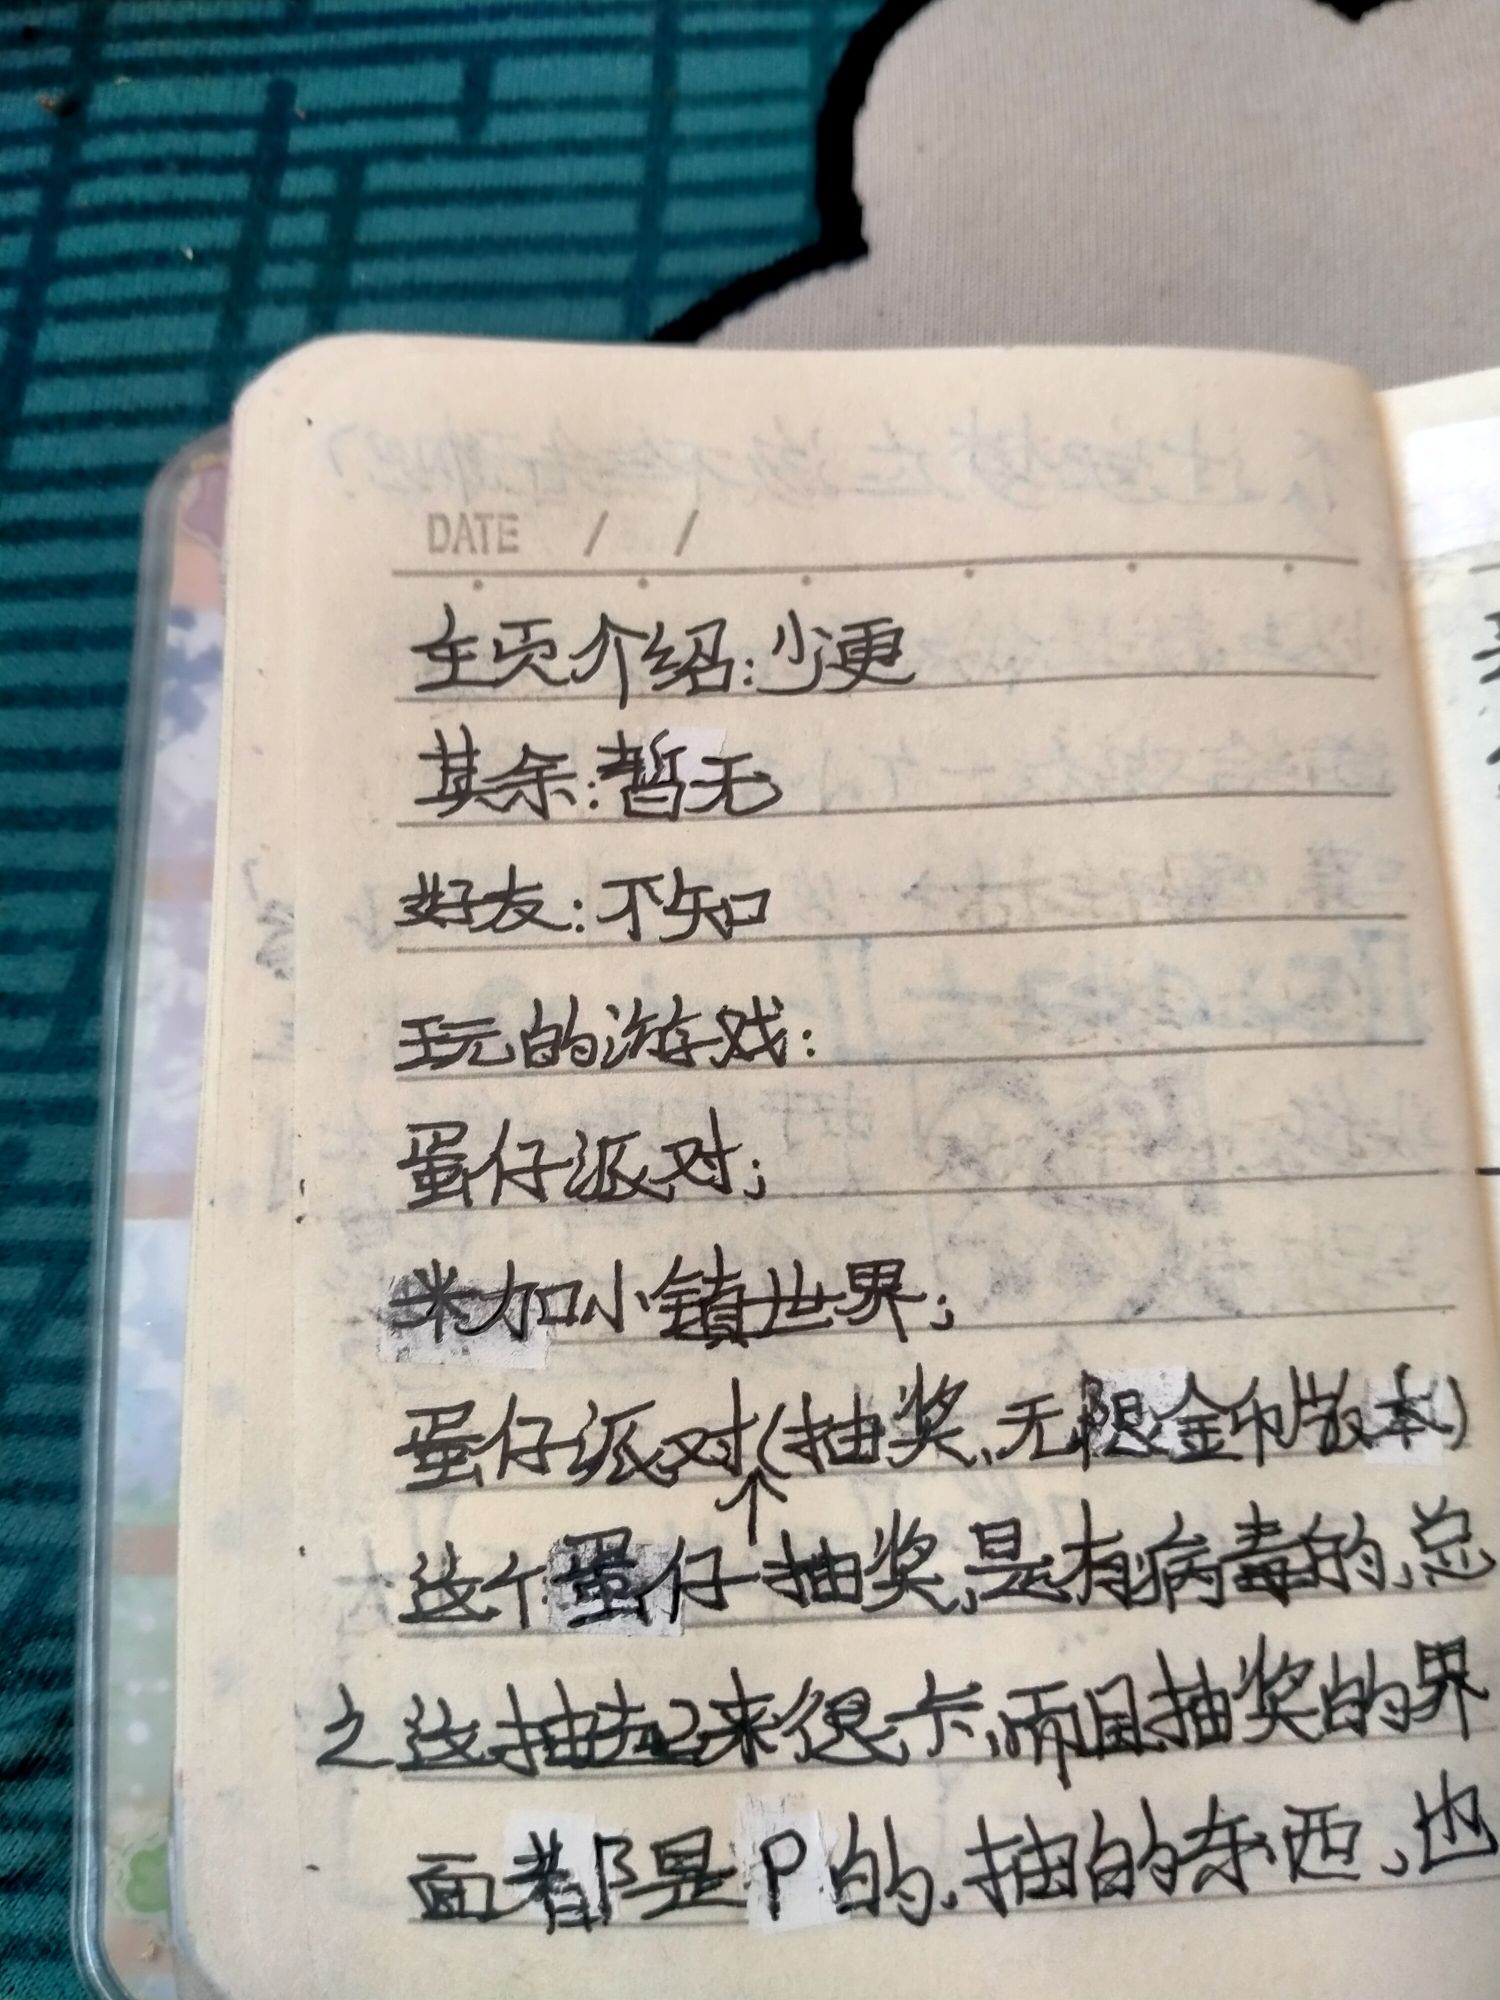 DATE / /
主页介绍:少更
其余:暂无
好友:不知
玩的游戏:
蛋仔派对;
米加小镇世界;
蛋仔派对(抽奖、无限金币版本)
↑
这个蛋仔抽奖,是有病毒的,总
之这抽起来很卡,而且抽奖的界
面都是P的,抽的东西,也